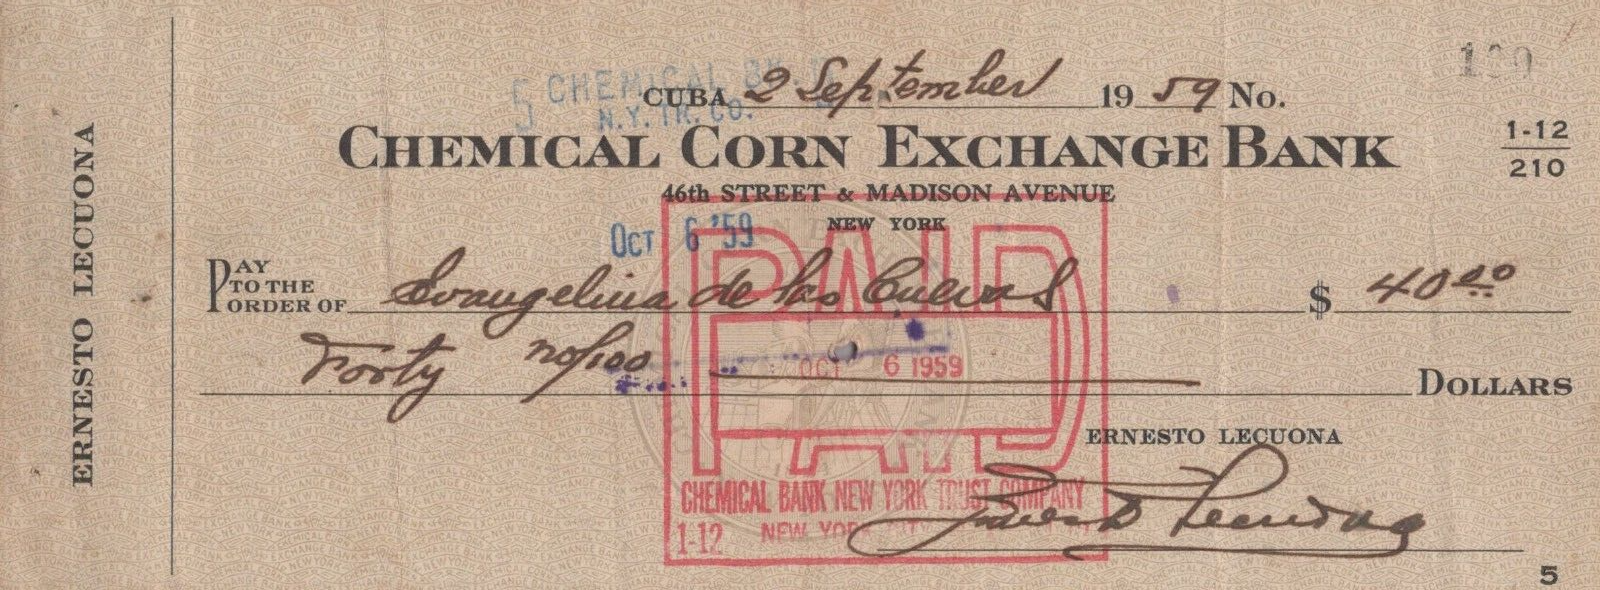 ERNESTO LECUONA
5 CHEMICAL
N.Y. TR. CO.
CUBA 2 September 1959 No.
CHEMICAL CORN EXCHANGE BANK
1-12
210
46th STREET & MADISON AVENUE
NEW YORK
OCT 6 '59
PAY TO THE ORDER OF Evangelina de las Cuevas $ 40 00
Forty no/100 DOLLARS
PAID
OCT 6 1959
ERNESTO LECUONA
Ernesto Lecuona
CHEMICAL BANK NEW YORK TRUST COMPANY
1-12 NEW YORK CITY
5